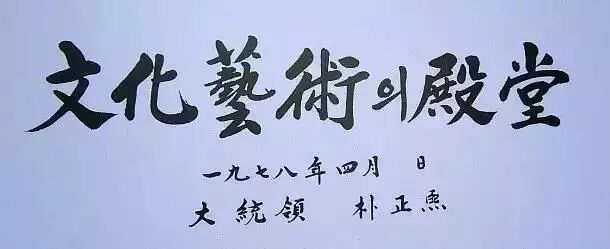 文化藝術의殿堂
一九七八年 四月 日
大統領 朴正熙